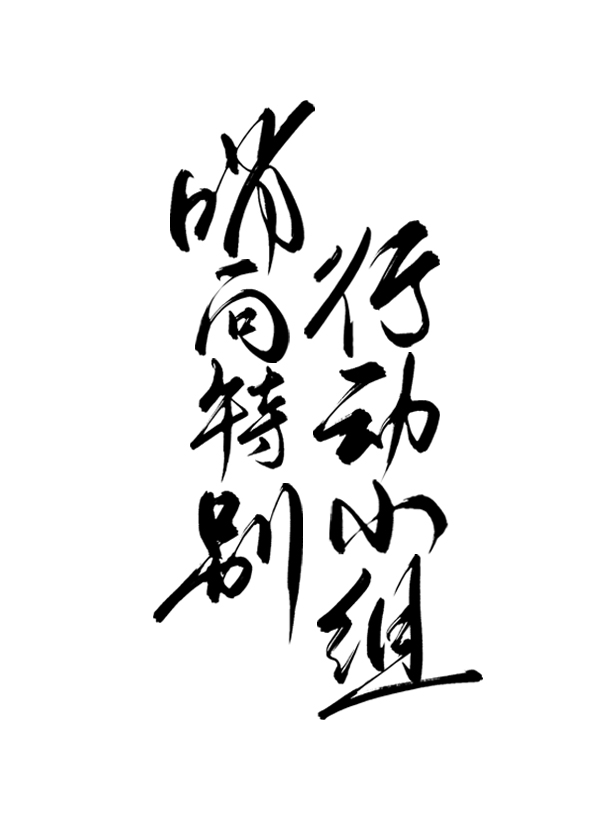 哨向特别
行动小组